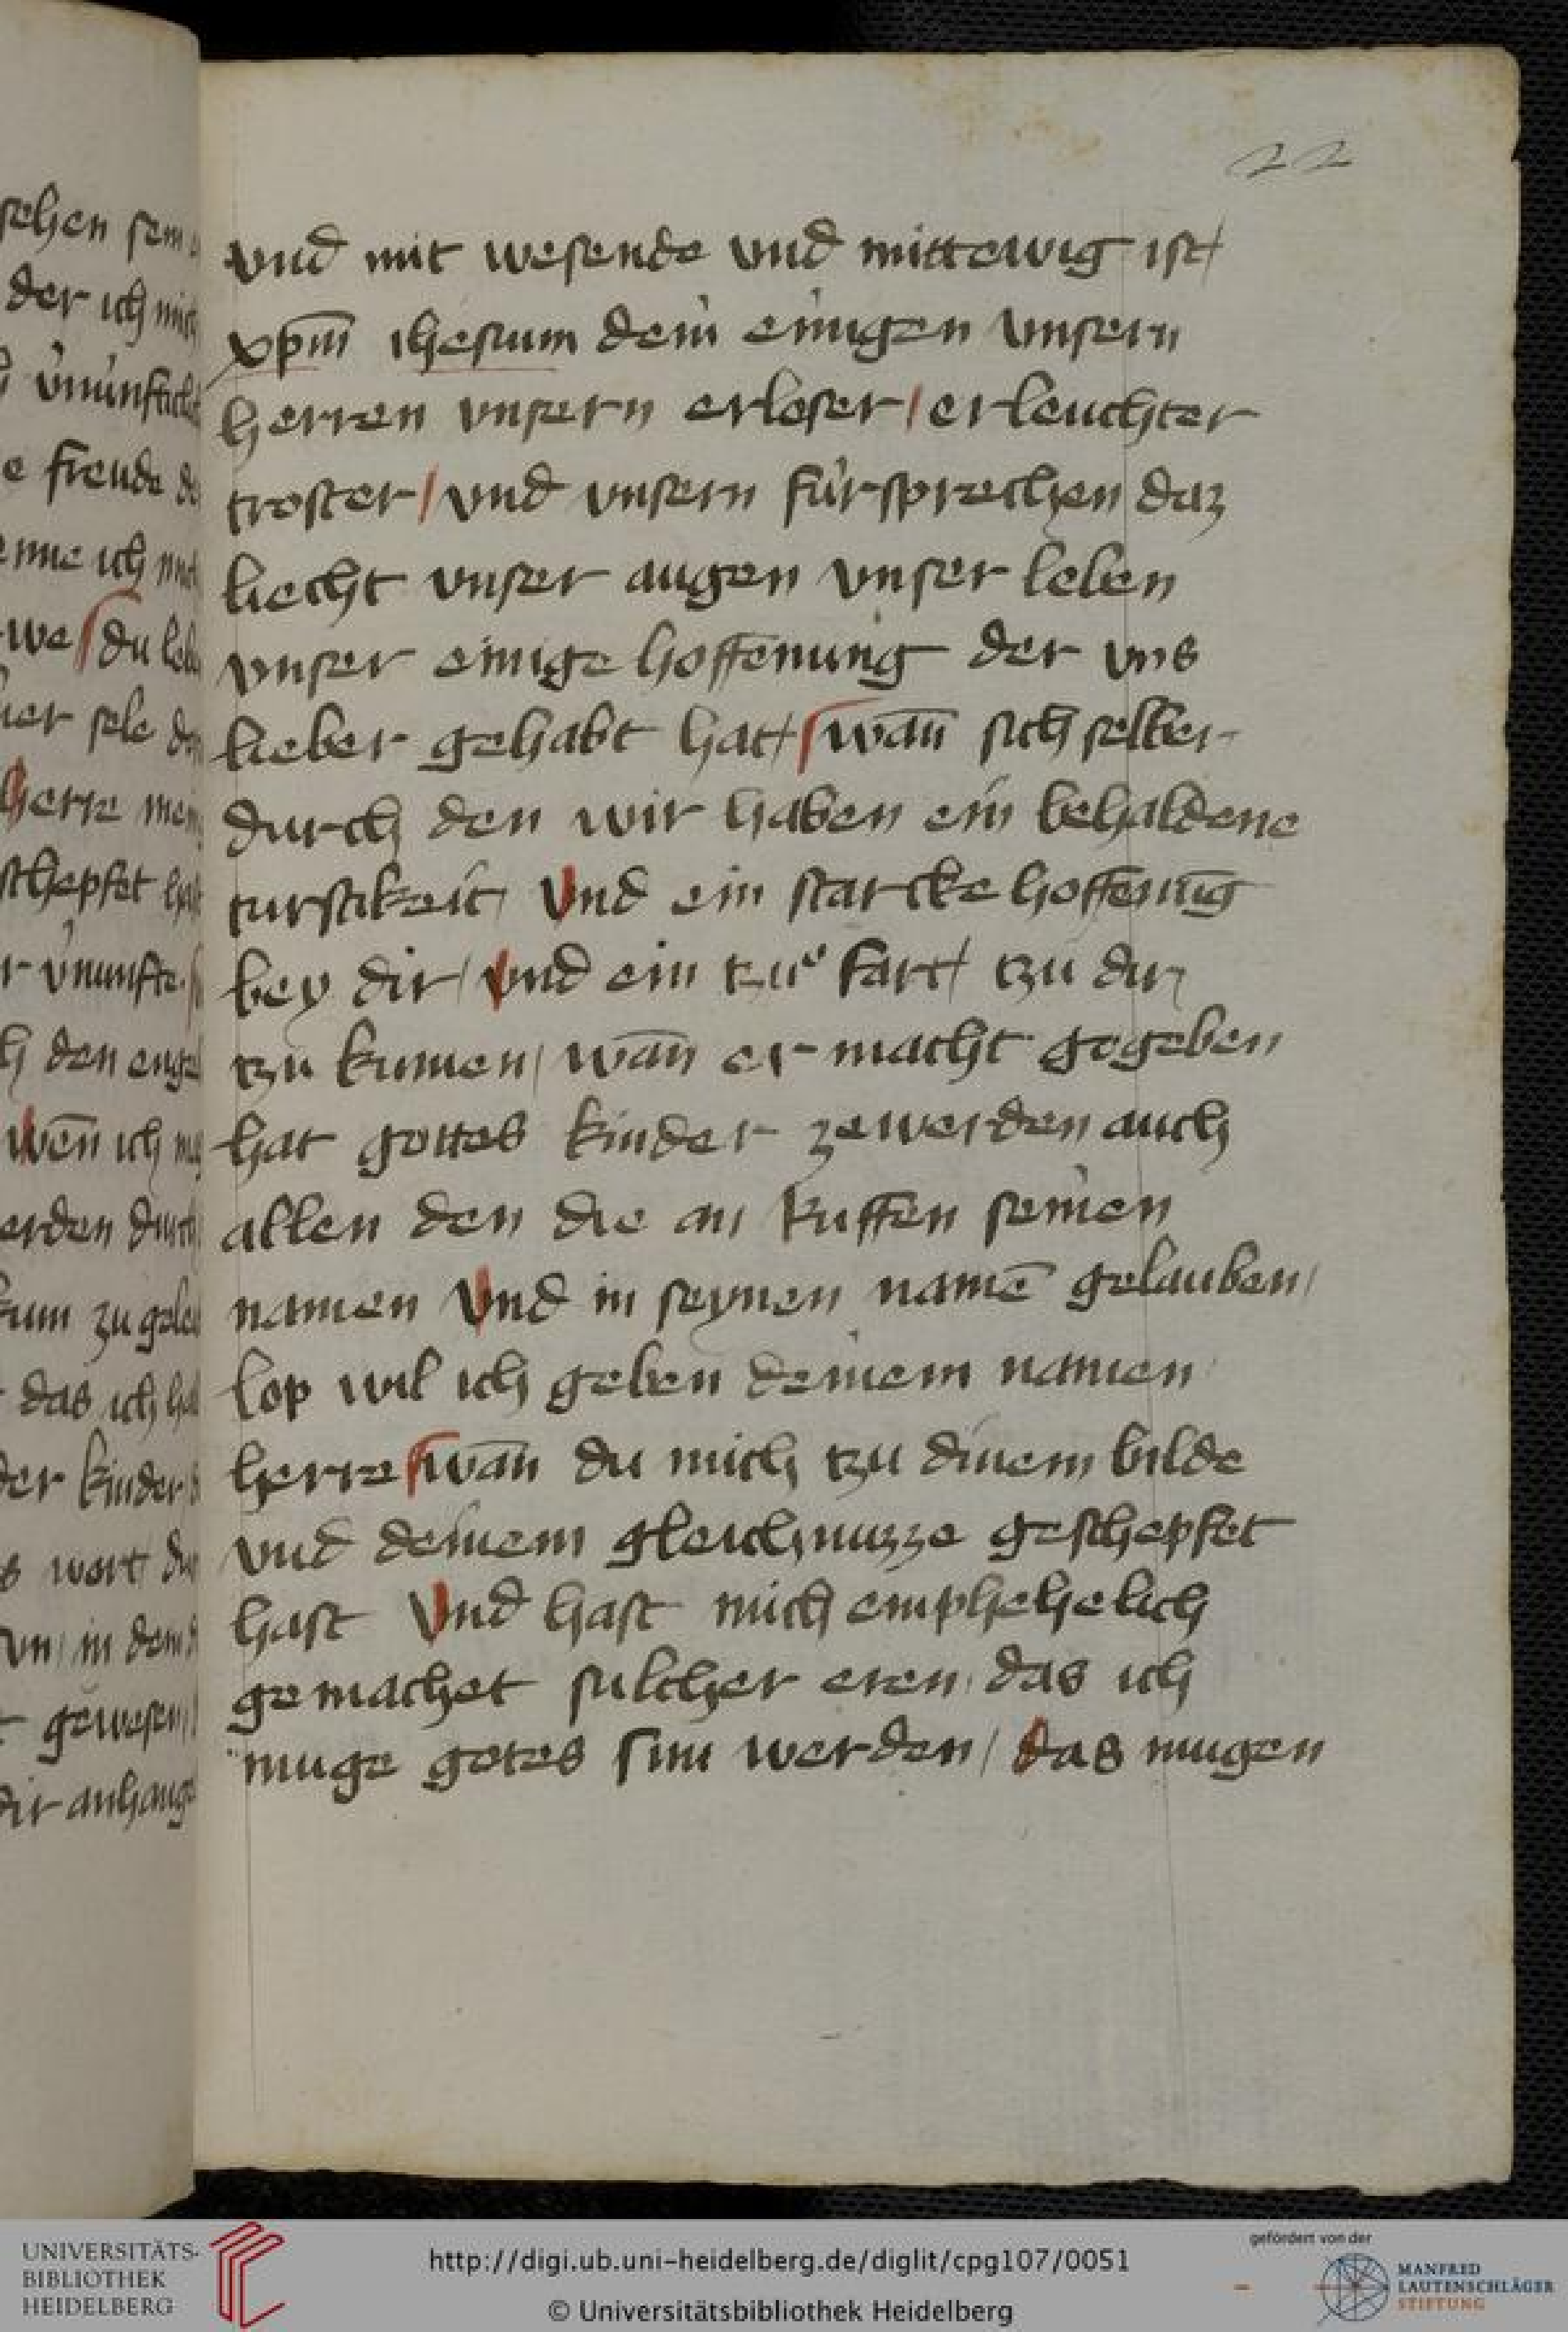 22
sehen sein
der ich mich
vnd mit wesende vnd mittewig ist/
xp̄m ihesum dein einigen vnsern
herren vnsern erloser / erleuchter
troster / vnd vnsern fursprechen daz
liecht vnser augen vnser leben
vnser einige hoffenung der vns
lieber gehabt hat/ wān sich selber
durch den wir haben ein behaldene
turstikeit/ Vnd ein starcke hoffenūg
bey dir/ vnd ein tzuͦ fart/ tzu dir
tzu kumen/ wān er macht gogeben
hat gottes kinder zewerden auch
allen den die an ruffen seinen
namen Vnd in seynen namē gelauben/
lop wil ich geben deinem namen
herre wān du mich tzu dinem bilde
vnd deinem gleichnuzze geschepfet
hast Vnd hast mich emphehelich
gemachet sulcher eren das ich
muge gotes sun werden/ das mugen
e freude
we du
der sele
herre mein
schepfet
h den engel
wēn ich
erden durch
das ich
der kinder
s wort
in dem
gewesen
dir anhange
UNIVERSITÄTS-
BIBLIOTHEK
HEIDELBERG
http://digi.ub.uni-heidelberg.de/diglit/cpg107/0051
© Universitätsbibliothek Heidelberg
gefördert von der
MANFRED
LAUTENSCHLÄGER
STIFTUNG